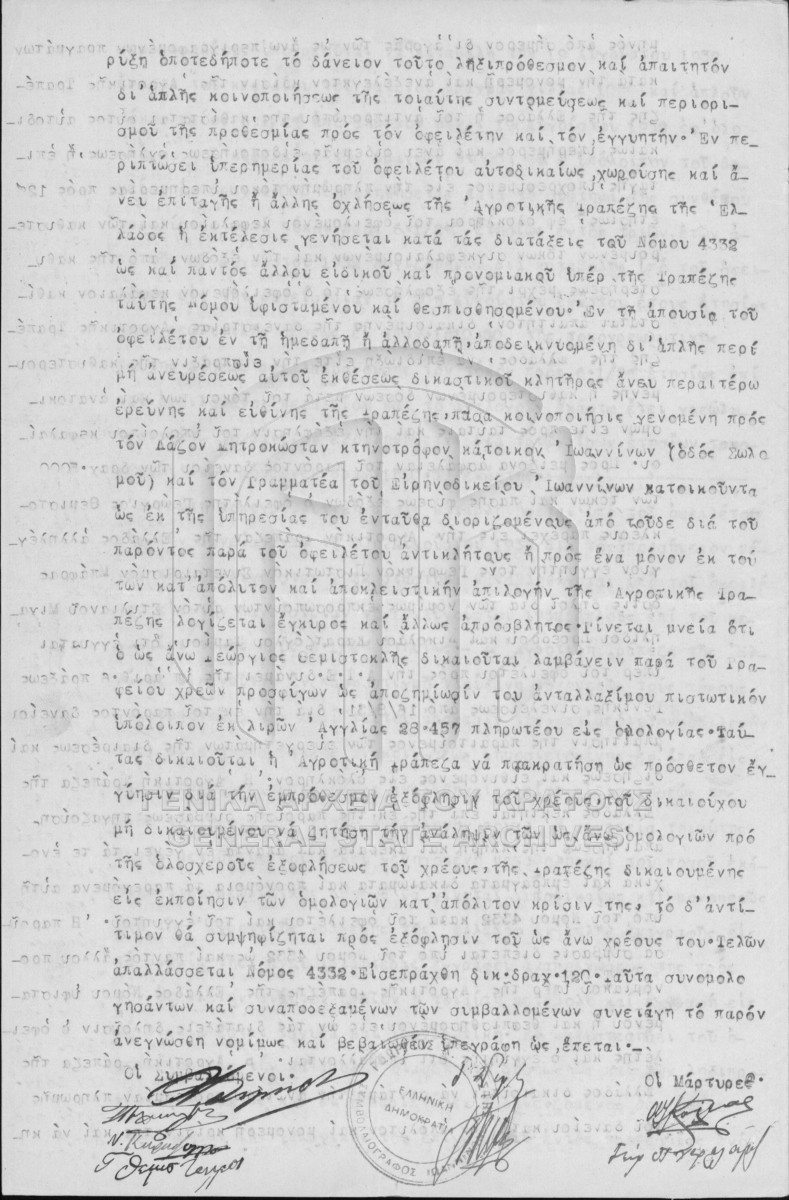 ρίξη ὁποτεδήποτε τό δάνειον τοῦτο ληξιπρόθεσμον καί ἀπαιτητόν
δι ἁπλῆς κοινοποιήσεως τῆς τοιαύτης συντομεύσεως καί περιορι-
σμοῦ τῆς προθεσμίας πρός τόν ὀφειλέτην καί τόν ἐγγυητήν. Ἐν πε-
ριπτώσει ὑπερημερίας τοῦ ὀφειλέτου αὐτοδικαίως χωρούσης καί ἄ-
νευ ἐπιταγῆς ἤ ἄλλης ὀχλήσεως τῆς Ἀγροτικῆς Τραπέζης τῆς Ἑλ-
λάδος ἡ ἐκτέλεσις γενήσεται κατά τάς διατάξεις τοῦ Νόμου 4332
ὡς καί παντός ἄλλου εἰδικοῦ καί προνομιακοῦ ὑπέρ τῆς Τραπέζης
ταύτης Νόμου ὑφισταμένου καί θεσπισθησομένου. Ἐν τῇ ἀπουσίᾳ τοῦ
ὀφειλέτου ἐν τῇ ἡμεδαπῇ ἤ ἀλλοδαπῇ, ἀποδεικνυομένῃ δι' ἁπλῆς περί
μή ἀνευρέσεως αὐτοῦ ἐκθέσεως δικαστικοῦ κλητῆρος ἄνευ περαιτέρω
ἐρεύνης καί εὐθύνης τῆς Τραπέζης, πᾶσα κοινοποίησις γενομένη πρός
τόν Λάζον Μητροκώσταν κτηνοτρόφον κάτοικον Ἰωαννίνων (ὁδός Σωλο
μοῦ) καί τόν Γραμματέα τοῦ Εἰρηνοδικείου Ἰωαννίνων κατοικοῦντα
ὡς ἐκ τῆς ὑπηρεσίας του ἐνταῦθα διοριζομένους ἀπό τοῦδε διά τοῦ
παρόντος παρά τοῦ ὀφειλέτου ἀντικλήτους ἤ πρός ἕνα μόνον ἐκ τού
των κατ ἀπόλυτον καί ἀποκλειστικήν ἐπιλογήν τῆς Ἀγροτικῆς Τρα-
πέζης λογίζεται ἔγκυρος καί ἄλλως ἀπρόσβλητος. Γίνεται μνεία ὅτι
ὁ ὡς ἄνω Γεώργιος Θεμιστοκλῆς δικαιοῦται λαμβάνειν παρά τοῦ Γρα-
φείου χρεῶν προσφύγων ὡς ἀποζημίωσίν του ἀνταλλαξίμου πιστωτικόν
ὑπόλοιπον ἐκ λιρῶν Ἀγγλίας 28.457 πληρωτέου εἰς ὁμολογίας. Ταύ-
τας δικαιοῦται ἡ Ἀγροτική Τράπεζα νά παρακρατήση ὡς πρόσθετον ἐγ-
γύησιν διά τήν ἐμπρόθεσμον ἐξόφλησιν τοῦ χρέους, τοῦ δικαιούχου
μή δικαιουμένου νά ζητήση τήν ἀνάληψιν τῶν ὡς ἄνω ὁμολογιῶν πρό
τῆς ὁλοσχεροῦς ἐξοφλήσεως τοῦ χρέους, τῆς Τραπέζης δικαιουμένης
εἰς ἐκποίησιν τῶν ὁμολογιῶν κατ ἀπόλυτον κρίσιν της, τό δ' ἀντί-
τιμον θά συμψηφίζηται πρός ἐξόφλησιν τοῦ ὡς ἄνω χρέους του. Τελῶν
ἀπαλλάσσεται Νόμος 4332. Εἰσεπράχθη δικ. δραχ. 120. Ταῦτα συνομολο
γησάντων καί συναποδεξαμένων τῶν συμβαλλομένων συνετάγη τό παρόν
ἀνεγνώσθη νομίμως καί βεβαιωθέν ὑπεγράφη ὡς ἕπεται.-
Οἱ Συμβαλλόμενοι. Οἱ Μάρτυρες.
ΕΛΛΗΝΙΚΗ
ΔΗΜΟΚΡΑΤΙΑ
ΓΕΝΙΚΑ ΑΡΧΕΙΑ ΤΟΥ ΚΡΑΤΟΥΣ
GENERAL STATE ARCHIVES